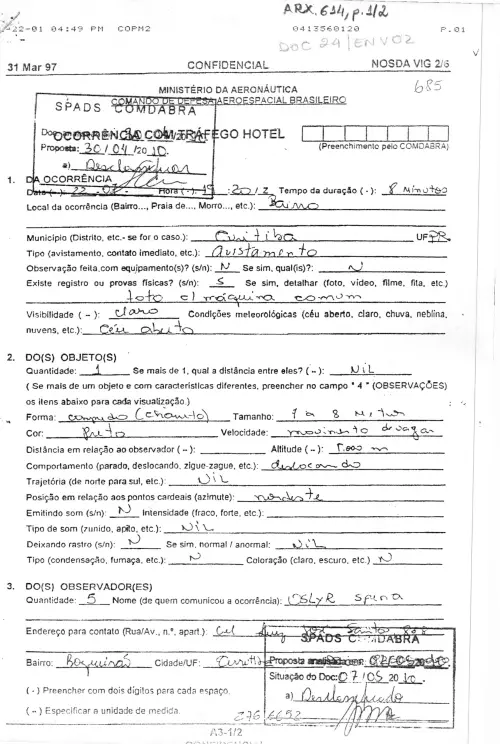 ARX. 614, p. 1/2
22-01 04:49 PM COPM2 0413560120 P.01
DOC 24 / ENV 02
31 Mar 97 CONFIDENCIAL NOSDA VIG 2/6
685
MINISTÉRIO DA AERONÁUTICA
COMANDO DE DEFESA AEROESPACIAL BRASILEIRO
SPADS COMDABRA
OCORRÊNCIA COM TRÁFEGO HOTEL
Proposta: 30/04/2010 (Preenchimento pelo COMDABRA)
a) Desclassificar
1. DA OCORRÊNCIA
Data ( - ): 22 Hora ( - ): 19 : 20 / Z Tempo da duração ( - ): 8 Minutos
Local da ocorrência (Bairro..., Praia de..., Morro..., etc.): Bairro
Município (Distrito, etc.- se for o caso.): Curitiba UF PR
Tipo (avistamento, contato imediato, etc.): Avistamento
Observação feita com equipamento(s)? (s/n): N Se sim, qual(is)?: N
Existe registro ou provas físicas? (s/n): S Se sim, detalhar (foto, vídeo, filme, fita, etc.)
foto c/ máquina comum
Visibilidade ( ~ ): claro Condições meteorológicas (céu aberto, claro, chuva, neblina,
nuvens, etc.): Céu aberto
2. DO(S) OBJETO(S)
Quantidade: 1 Se mais de 1, qual a distância entre eles? ( ~ ): NIL
( Se mais de um objeto e com características diferentes, preencher no campo " 4 " (OBSERVAÇÕES)
os itens abaixo para cada visualização.)
Forma: comprido (charuto) Tamanho: 7 a 8 Metros
Cor: Preto Velocidade: movimento devagar
Distância em relação ao observador ( ~ ): Altitude ( ~ ): 1.000 m
Comportamento (parado, deslocando, zigue-zague, etc.): deslocando
Trajetória (de norte para sul, etc.): NIL
Posição em relação aos pontos cardeais (azimute): nordeste
Emitindo som (s/n): N Intensidade (fraco, forte, etc.):
Tipo de som (zunido, apito, etc.): NIL
Deixando rastro (s/n): N Se sim, normal / anormal: NIL
Tipo (condensação, fumaça, etc.): N Coloração (claro, escuro, etc.) N
3. DO(S) OBSERVADOR(ES)
Quantidade: 5 Nome (de quem comunicou a ocorrência):
Endereço para contato (Rua/Av., n.º, apart.): Cel Luiz Santos
SPADS COMDABRA
Bairro: Cidade/UF: Proposta
( - ) Preencher com dois dígitos para cada espaço. Situação do Doc: 07/05/2010
a) Desclassificado
( ~ ) Especificar a unidade de medida. 276 6652
A3-1/2
CONFIDENCIAL